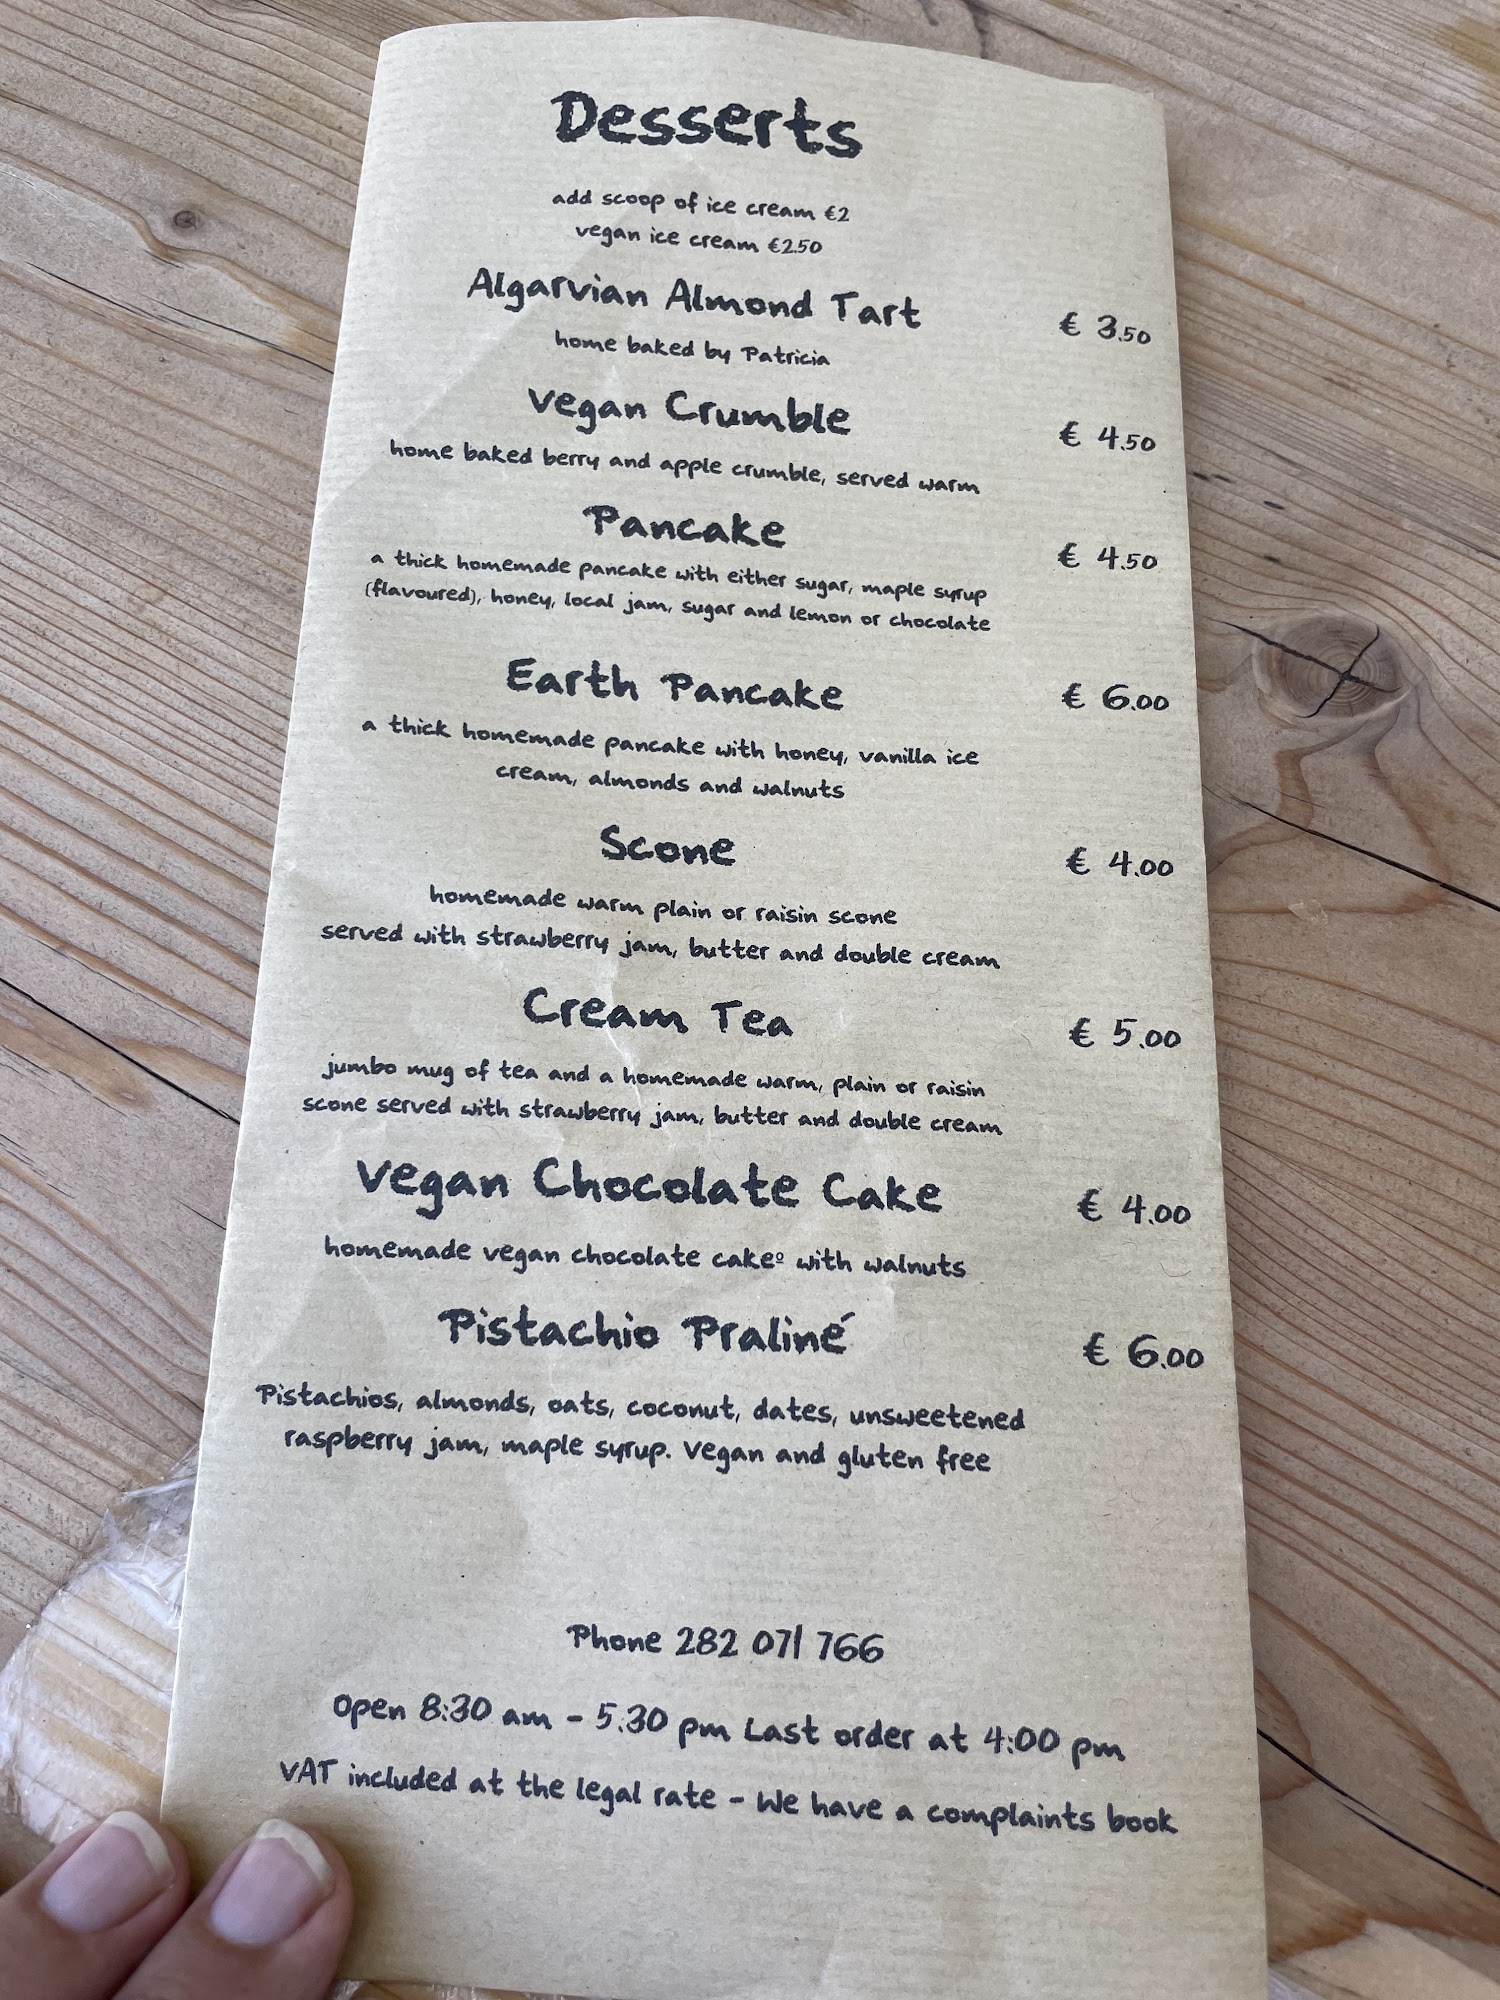 Desserts
add scoop of ice cream €2
vegan ice cream €2.50
Algarvian Almond Tart € 3.50
home baked by Patricia
Vegan Crumble € 4.50
home baked berry and apple crumble, served warm
Pancake € 4.50
a thick homemade pancake with either sugar, maple syrup
(flavoured), honey, local jam, sugar and lemon or chocolate
Earth Pancake € 6.00
a thick homemade pancake with honey, vanilla ice
cream, almonds and walnuts
Scone € 4.00
homemade warm plain or raisin scone
served with strawberry jam, butter and double cream
Cream Tea € 5.00
jumbo mug of tea and a homemade warm, plain or raisin
scone served with strawberry jam, butter and double cream
Vegan Chocolate Cake € 4.00
homemade vegan chocolate cakeº with walnuts
Pistachio Praliné € 6.00
Pistachios, almonds, oats, coconut, dates, unsweetened
raspberry jam, maple syrup. Vegan and gluten free
Phone 282 071 766
Open 8:30 am - 5.30 pm Last order at 4:00 pm
VAT included at the legal rate - We have a complaints book